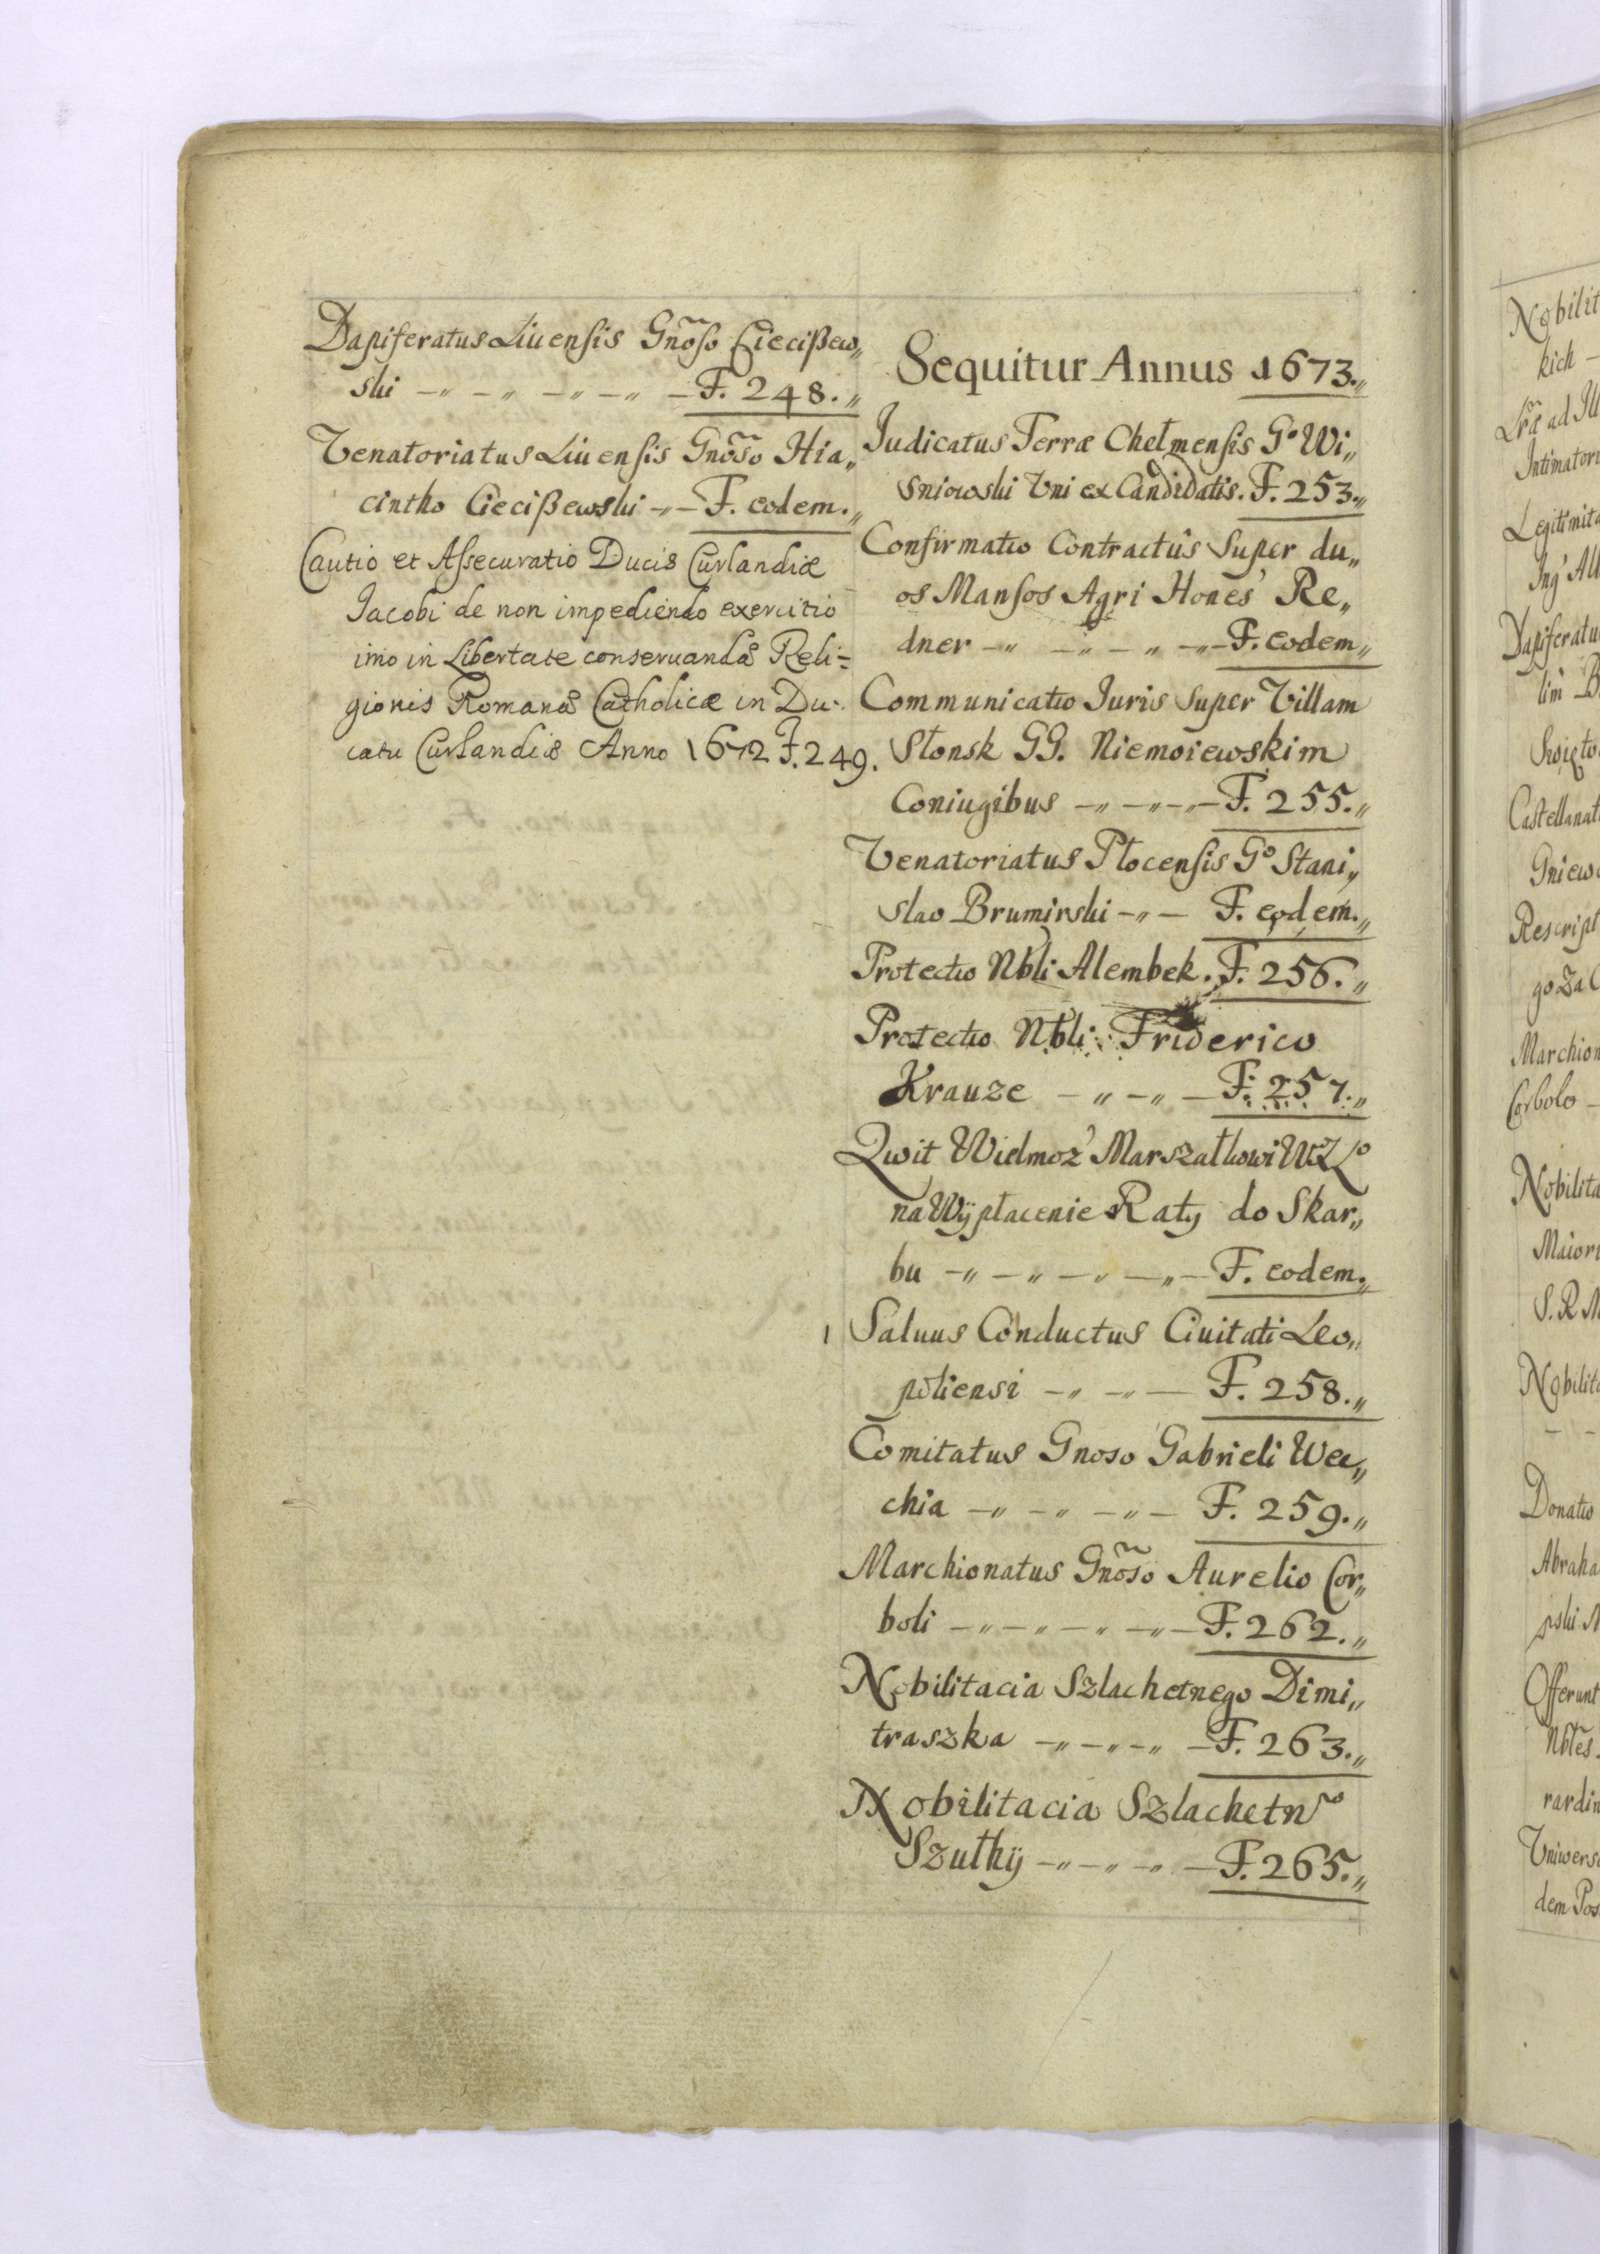 Dapiferatus Liuensis Gnõso Ciecißew„
ski —„ —„ —„ —„ — F. 248.„
Venatoriatus Liuensis Gnõso Hia„
cintho Ciecißewski —„— F. eodem.„
Cautio et Assecuratio Ducis Curlandiæ
Jacobi de non impediendo exercitio
imo in Libertate conseruandæ Reli-
gionis Romanæ Catholicæ in Du-
catu Curlandiæ Anno 1672 F. 249.
Sequitur Annus 1673.„
Judicatus Terræ Chełmensis Gº Wi„
sniowski Vni ex Candidatis. F. 253.„
Confirmatio Contractûs Super du„
os Mansos Agri Hones' Re„
dner —„ —„ —„ —„— F. eodem„
Communicatio Juris Super Villam
Słonsk GG. Niemoiewskim
Coniugibus —„ —„—„— F. 255.„
Venatoriatus Płocensis Gº Stani„
slao Brumirski —„— F. eodem.„
Protectio Nbli Alembek. F. 256.„
Protectio Nbli Friderico
Krauze —„ —„ — F. 257.„
Qwit Wielmoż' Marszałkowi WXLº
na Wÿpłacenie Raty do Skar„
bu —„ —„ —„ —„— F. eodem.„
1 Saluus Conductus Ciuitati Leo„
poliensi —„ —„— F. 258.„
Comitatus Gnoso Gabrieli Wee„
chia —„ —„ —„— F. 259.„
Marchionatus Gnõso Aurelio Cor„
boli —„—„ —„ —„— F. 262.„
Nobilitacia Szlachetnego Dimi„
traszka —„—„—„ — F. 263.„
Nobilitacia Szlachetnº
Szułkÿ —„—„ —„ — F. 265.„
Nobilit
kich —
Lrã ad Ill
Intimatori
Legitimita
Ing' Al
Dapiferatu
lin B
Castellanat
Gniew
Rescript
go Za C
Marchion
Corbolo —
Nobilita
Maiori
S. R M
Nobilita
— —
Donatio
Abraha
pski M
Offerunt
Nbles
rardin
Vniwers
dem Pos